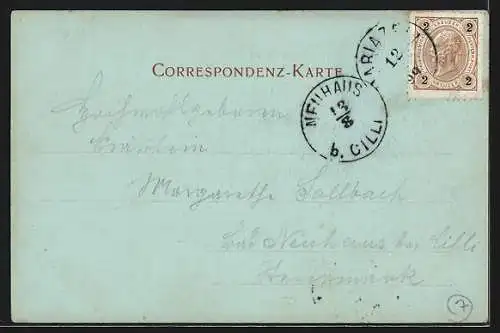 2 2
2 2
MARIAZ
12
98
CORRESPONDENZ-KARTE
NEUHAUS
12/8
b. CILLI
Hochwohlgeboren
Fräulein
Margarethe Sallbach
Bad Neuhaus bei Cilli
Steiermark
7